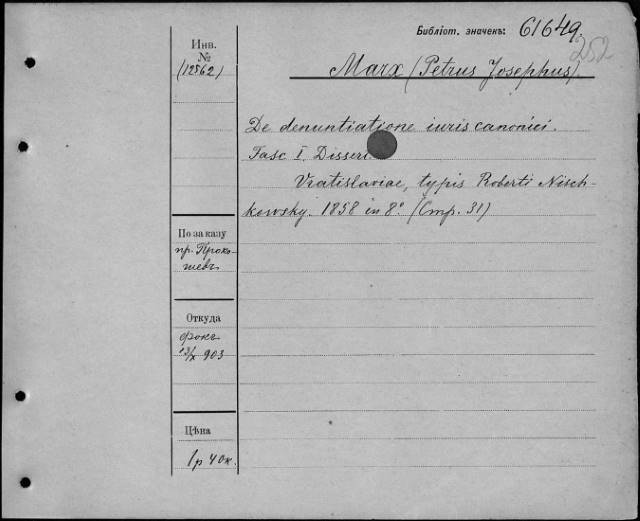 Библіот. значекъ: 61649.
252
Инв.
№
(12562)
Marx (Petrus Josephus).
De denuntiatione iuris canonici.
Fasc I. Dissert
Vratislaviae, typis Roberti Nisch-
kowsky. 1858 in 8°. (Стр. 31)
По заказу
пр. Проко-
шевъ
Откуда
Фокъ
13/X 903
Цѣна
1 р 40 к.